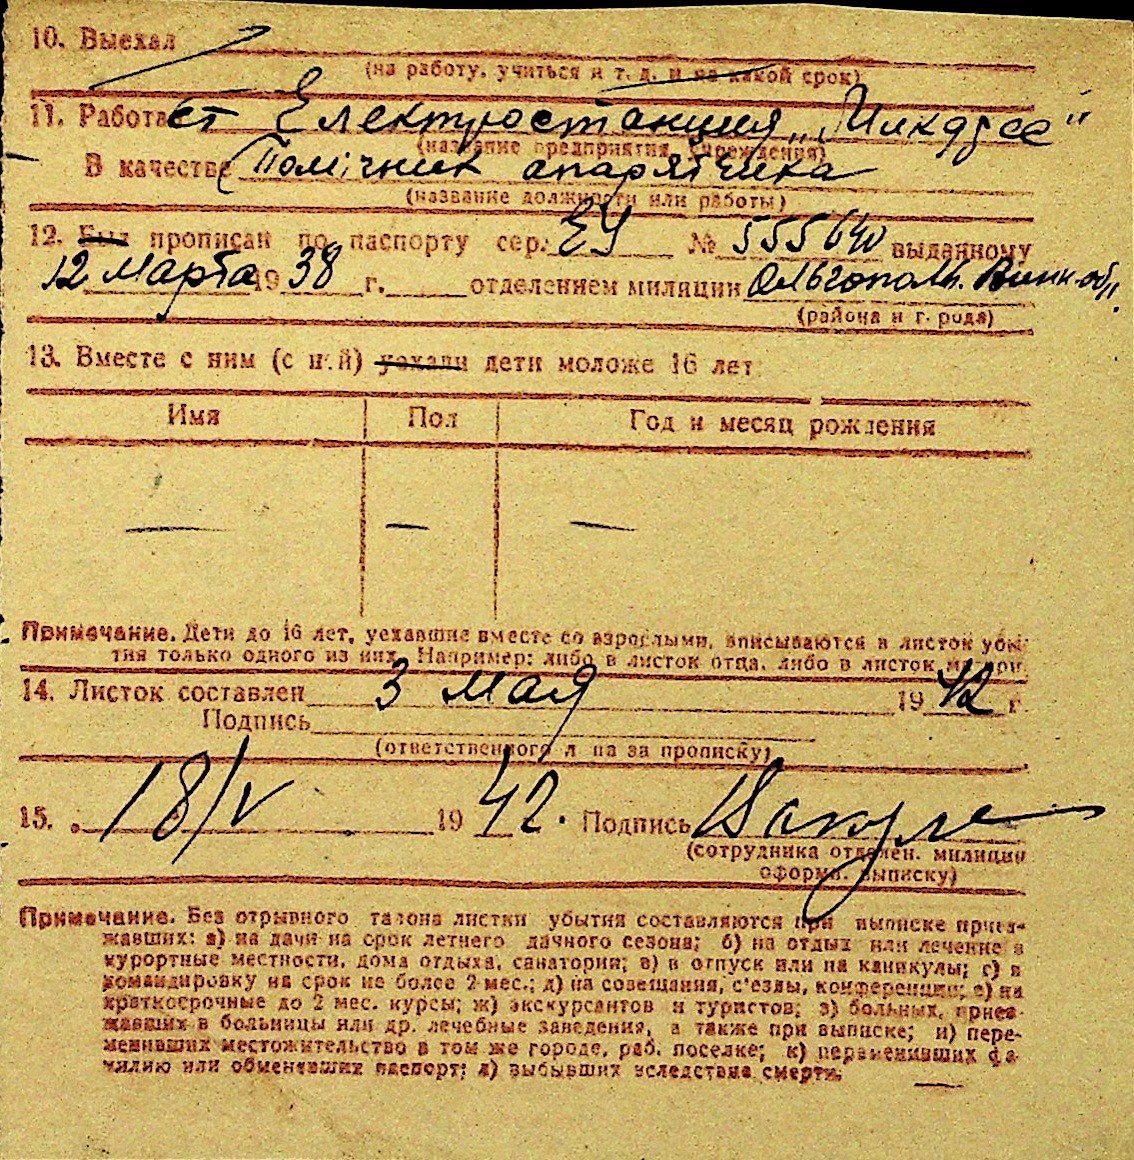 10. Выехал
(на работу, учиться и т. д. и на какой срок)
11. Работает Електростанция „Микадзе"
(название предприятия, учреждения)
В качестве Помічник апаратчика
(название должности или работы)
12. Был прописан по паспорту сер. ЕУ № 555640 выданному
12 марта 1938 г. отделением милиции Ольгопольск. Винн. обл.
(района и города)
13. Вместе с ним (с ней) уехали дети моложе 16 лет
Имя Пол Год и месяц рождения
— — —
Примечание. Дети до 16 лет, уехавшие вместе со взрослыми, вписываются в листок убы-
тия только одного из них. Например: либо в листок отца, либо в листок матери.
14. Листок составлен 3 мая 1942 г.
Подпись
(ответственного лица за прописку)
15. 18/V 1942. Подпись
(сотрудника отделен. милиции
оформ. выписку)
Примечание. Без отрывного талона листки убытия составляются при выписке приез-
жавших: а) на дачи на срок летнего дачного сезона; б) на отдых или лечение в
курортные местности, дома отдыха, санатории; в) в отпуск или на каникулы; г) в
командировку на срок не более 2 мес.; д) на совещания, с'езды, конференции; е) на
краткосрочные до 2 мес. курсы; ж) экскурсантов и туристов; з) больных, приез-
жавших в больницы или др. лечебные заведения, а также при выписке; и) пере-
менивших местожительство в том же городе, раб. поселке; к) переменивших фа-
милию или обменявших паспорт; л) выбывших вследствие смерти.